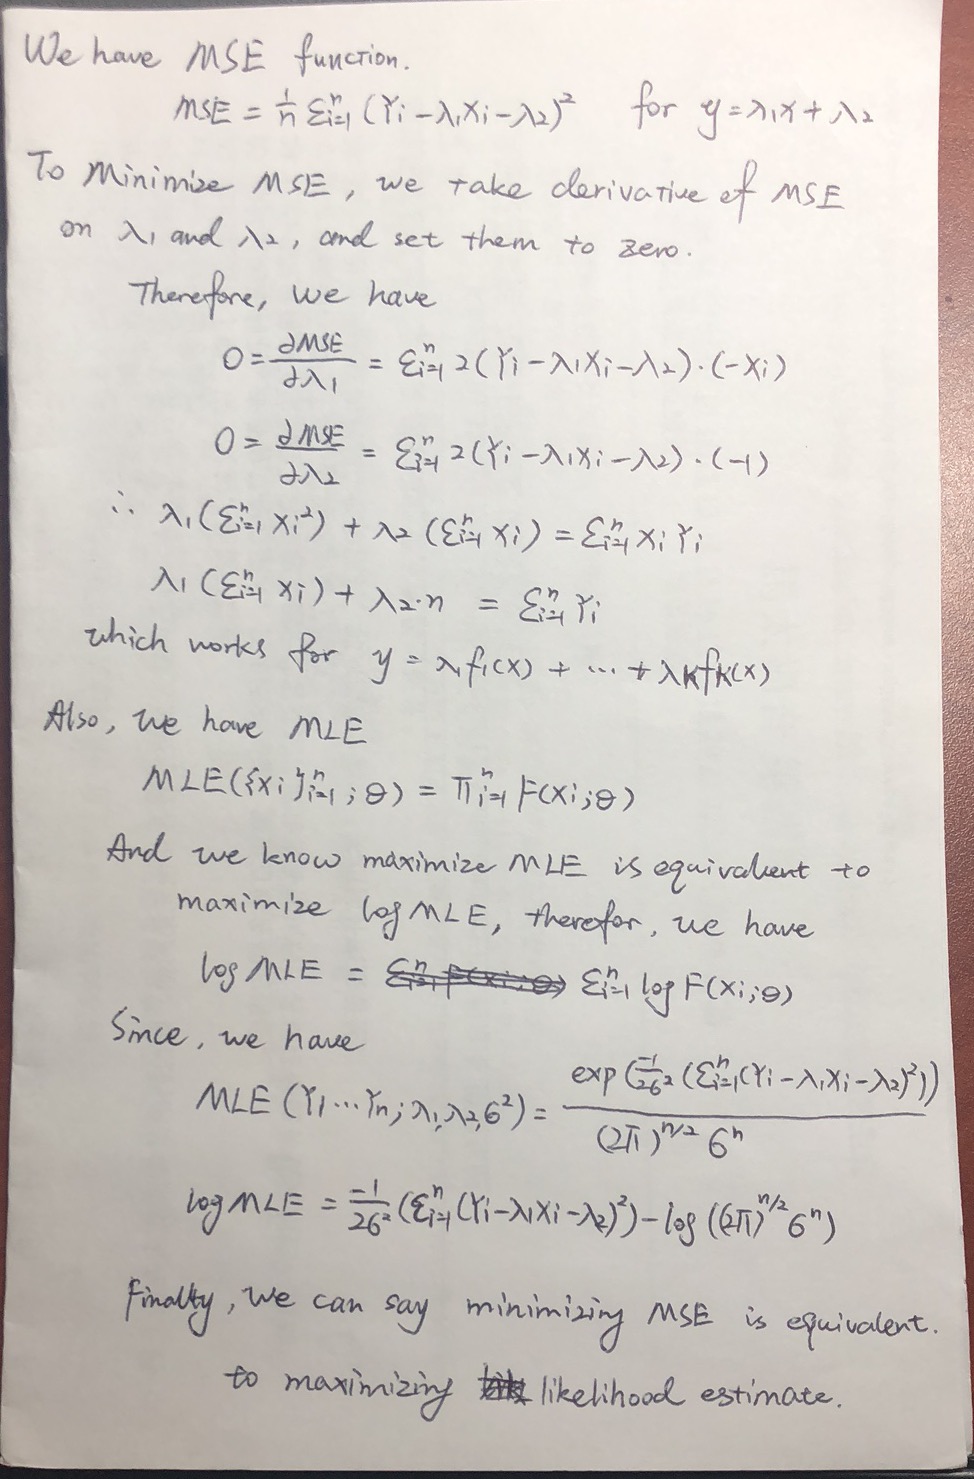 We have MSE function.
MSE = 1/n Σⁿᵢ₌₁ (Yi - λ₁Xi - λ₂)² for y = λ₁x + λ₂
To Minimize MSE, we take derivative of MSE
on λ₁ and λ₂, and set them to zero.
Therefore, we have
0 = ∂MSE/∂λ₁ = Σⁿᵢ₌₁ 2(Yi - λ₁Xi - λ₂)·(-Xi)
0 = ∂MSE/∂λ₂ = Σⁿᵢ₌₁ 2(Yi - λ₁Xi - λ₂)·(-1)
∴ λ₁(Σⁿᵢ₌₁ Xi²) + λ₂(Σⁿᵢ₌₁ Xi) = Σⁿᵢ₌₁ Xi Yi
λ₁(Σⁿᵢ₌₁ Xi) + λ₂·n = Σⁿᵢ₌₁ Yi
which works for y = λ₁f₁(x) + ... + λKfK(x)
Also, we have MLE
MLE({Xi}ⁿᵢ₌₁; θ) = πⁿᵢ₌₁ F(Xi; θ)
And we know maximize MLE is equivalent to
maximize log MLE, therefor, we have
log MLE = Σⁿᵢ₌₁ F(Xi; θ) Σⁿᵢ₌₁ log F(Xi; θ)
Since, we have
MLE(Y₁...Yn; λ₁, λ₂, σ²) = exp(-1/2σ² (Σⁿᵢ₌₁(Yi - λ₁Xi - λ₂)²)) / (2π)^n/2 σⁿ
log MLE = -1/2σ² (Σⁿᵢ₌₁(Yi - λ₁Xi - λ₂)²) - log((2π)^n/2 σⁿ)
Finally, we can say minimizing MSE is equivalent.
to maximizing likelihood estimate.